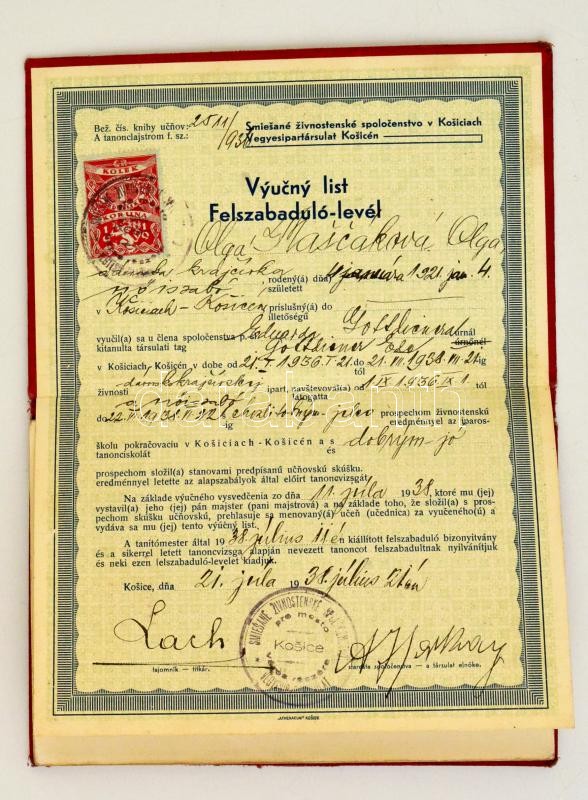 Bež. čís. knihy učňov: 2511/
A tanonclajstrom f. sz.: 1938
Smiešané živnostenské spoločenstvo v Košiciach
Vegyesipartársulat Košicén
KOLEK
KORUNA
Výučný list
Felszabaduló-levél
Olga Maščáková Olga
dámska krajčírka rodený(á) dňa 4 januára 1921 jan. 4.
női szabó született
v Košiciach-Košicén príslušný(á) do
illetőségű
vyučil(a) sa u člena spoločenstva p. Eduarda Gottdienera
kitanulta társulati tag Gottdiener Ede úrnál
úrnőnél
v Košiciach, Košicén v dobe od 21. I. 1936. I. 21. do 21. III. 1938. III. 21. ig
tól
živnosti damskokrajčírskej ipart, navštevoval(a) od 1 IX 1936 IX 1. tól
a női szabó látogatta
do 22. VI. 1938. VI. 22. s chvalitebným-jeles prospechom živnostenskú
ig eredménnyel az iparos-
školu pokračovaciu v Košiciach-Košicén a s dobrým-jó
tanonciskolát és
prospechom složil(a) stanovami predpísanú učňovskú skúšku.
eredménnyel letette az alapszabályok által előirt tanoncvizsgát.
Na základe výučného vysvedčenia zo dňa 11. júla 1938, ktoré mu (jej)
vystavil(a) jeho (jej) pán majster (pani majstrová) a na základe toho, že složil(a) s pros-
pechom skúšku učňovskú, prehlasuje sa menovaný(á) učeň (učednica) za vyučeného(ú) a
vydáva sa mu (jej) tento výučný list.
A tanítómester által 1938 július 11én kiállított felszabadulási bizonyítvány
és a sikerrel letett tanoncvizsga alapján nevezett tanoncot felszabadultnak nyilvánítjuk
és neki ezen felszabaduló-levelet kiadjuk.
Košice, dňa 21. júla 1938. július 21én
SMIEŠANÉ ŽIVNOSTENSKÉ
pre mesto
Košice
város részére
Lach
tajomník — titkár.
starosta spoločenstva — a társulat elnöke.
„ATHENAEUM" KOŠICE